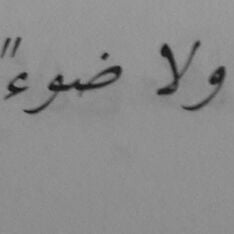 ولا ضوء"